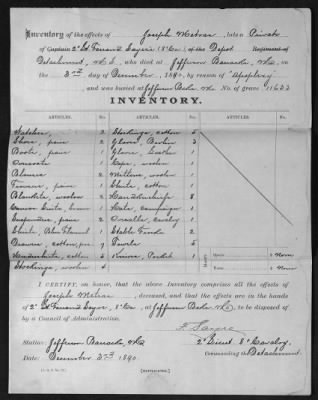 Inventory of the effects of Joseph Metras, late a Private
of Captain 2d Lt Farrand Sayre's (8" Cav.) of the Depot Regiment of
Detachment, U.S., who died at Jefferson Barracks, Mo., on
the 3rd day of December, 1890, by reason of "Apoplexy"
and was buried at Jefferson Bks Mo. No. of grave 11633
INVENTORY.
ARTICLES. No. ARTICLES. No. ARTICLES. No.
2 Stockings, cotton 5
Shoes, pairs 2 Gloves, Berlin 3
Boots, pair 1 Gloves, 1
Overcoat 1 Cape, woolen 1
Blouse 2 Mittens, woolen 1
Trousers, pairs 1 Shirts, cotton 1
Blankets, woolen 2 Handkerchiefs 8
1 Hats, campaign 1
Suspenders, pairs 2 Overalls, cavalry 1
Shirts, Blue Flannel 1 Stable Frocks 2
Drawers, cotton, prs 7 Towels 5
Undershirts, cotton 3 Knives, Pocket 1
Stockings, woolen 4
Money
$ None
None
I CERTIFY, on honor, that the above Inventory comprises all the effects of
Joseph Metras, deceased, and that the effects are in the hands
of 2d Lt Farrand Sayre, 8" Cav, at Jefferson Bks Mo, to be disposed of
by a Council of Administration.
F. Sayre
Station: Jefferson Barracks, Mo. 2d Lieut. 8" Cavalry,
Date: December 3rd 1890. Commanding the Detachment.